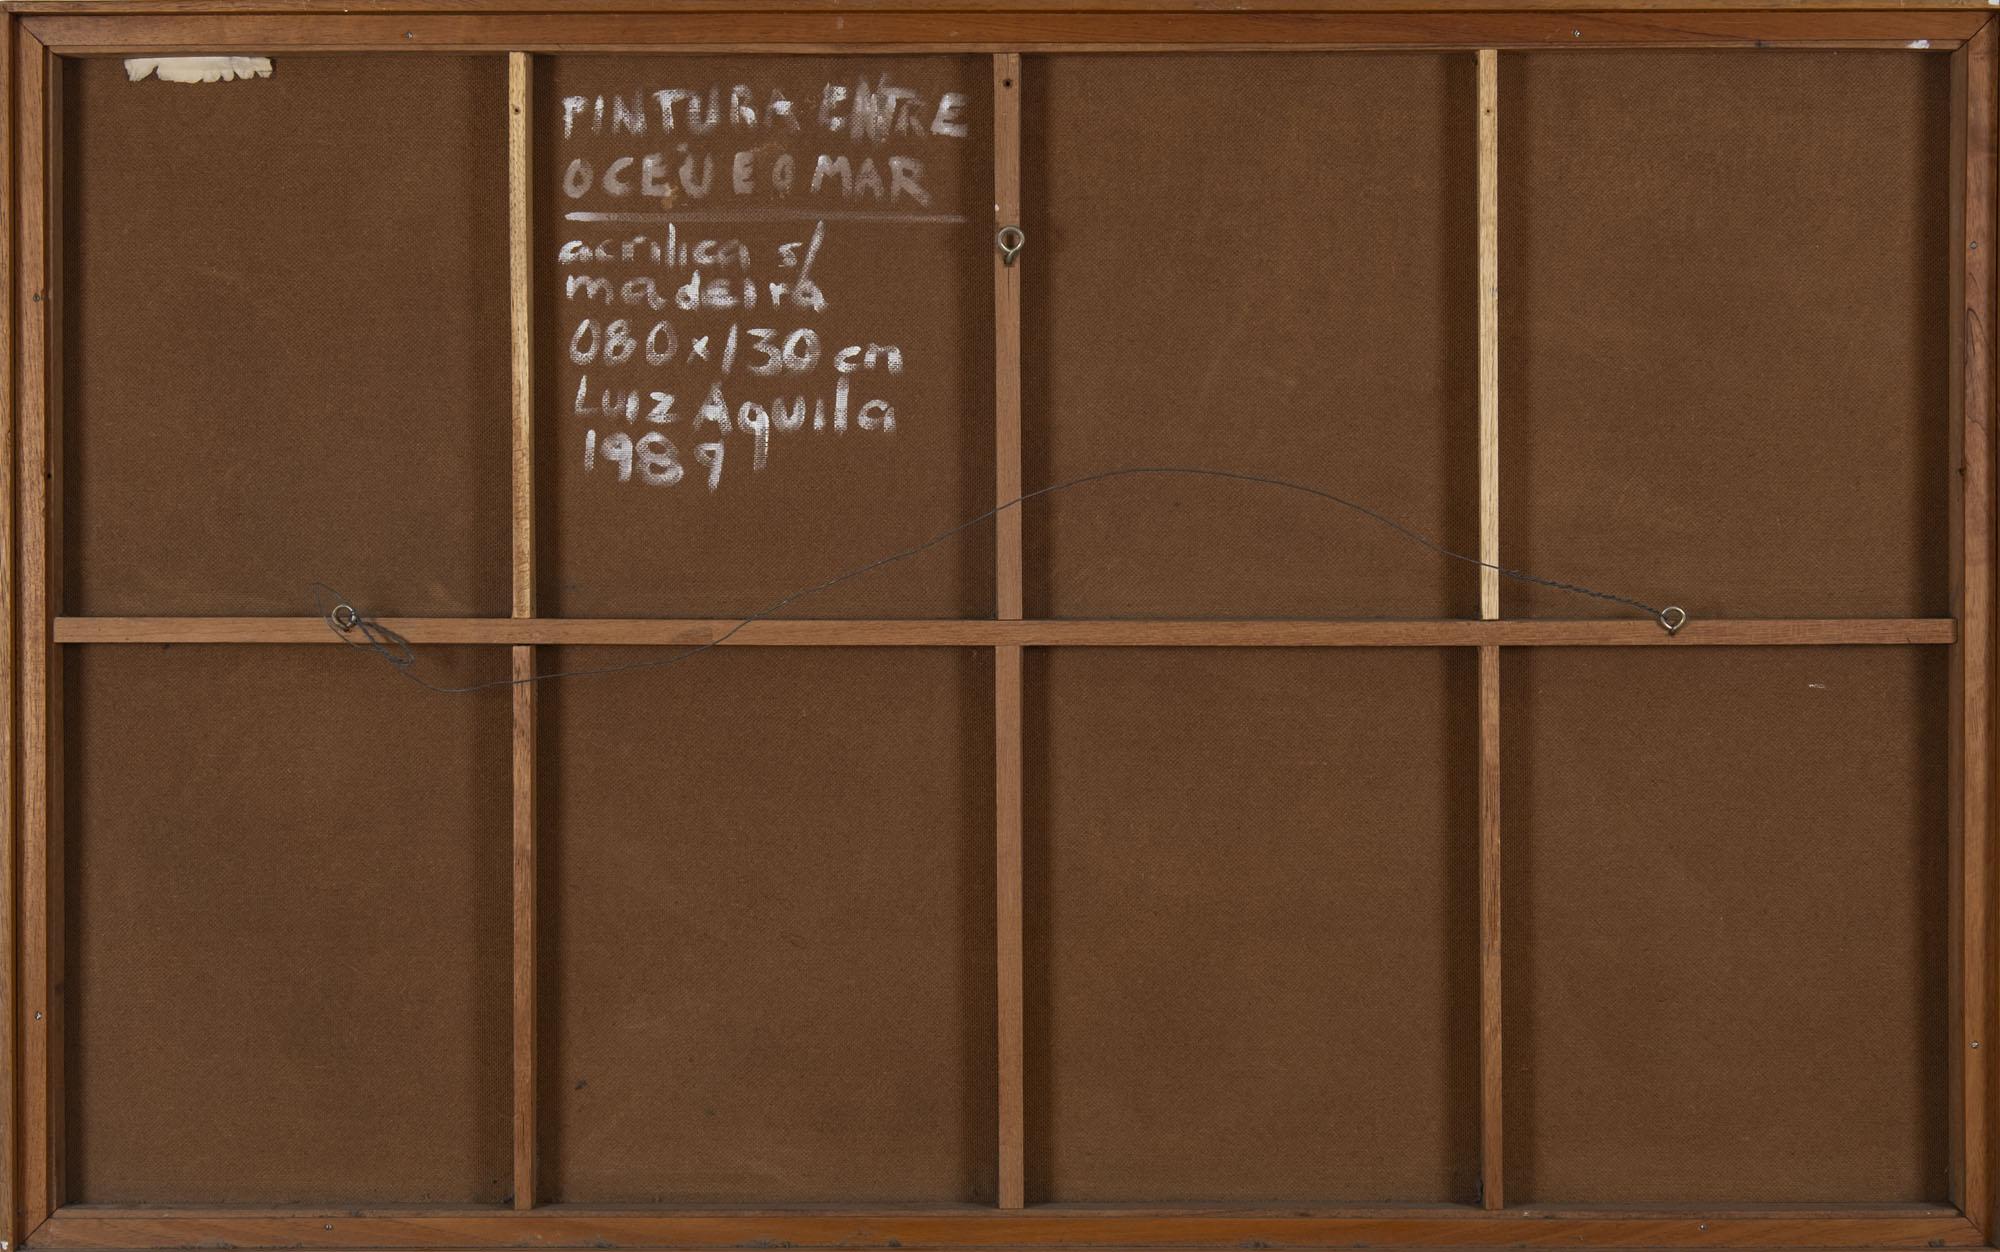 PINTURA ENTRE
O CÉU E O MAR
acrílica s/
madeira
080x130 cm
Luiz Aquila
1989